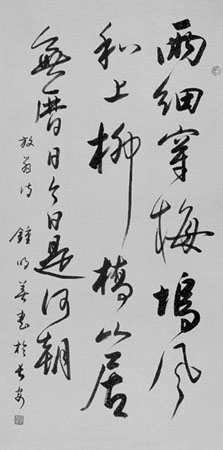 雨細穿梅塢風
和上柳橋山居
無曆日今日是何朝
放翁詩 鍾明善書於長安